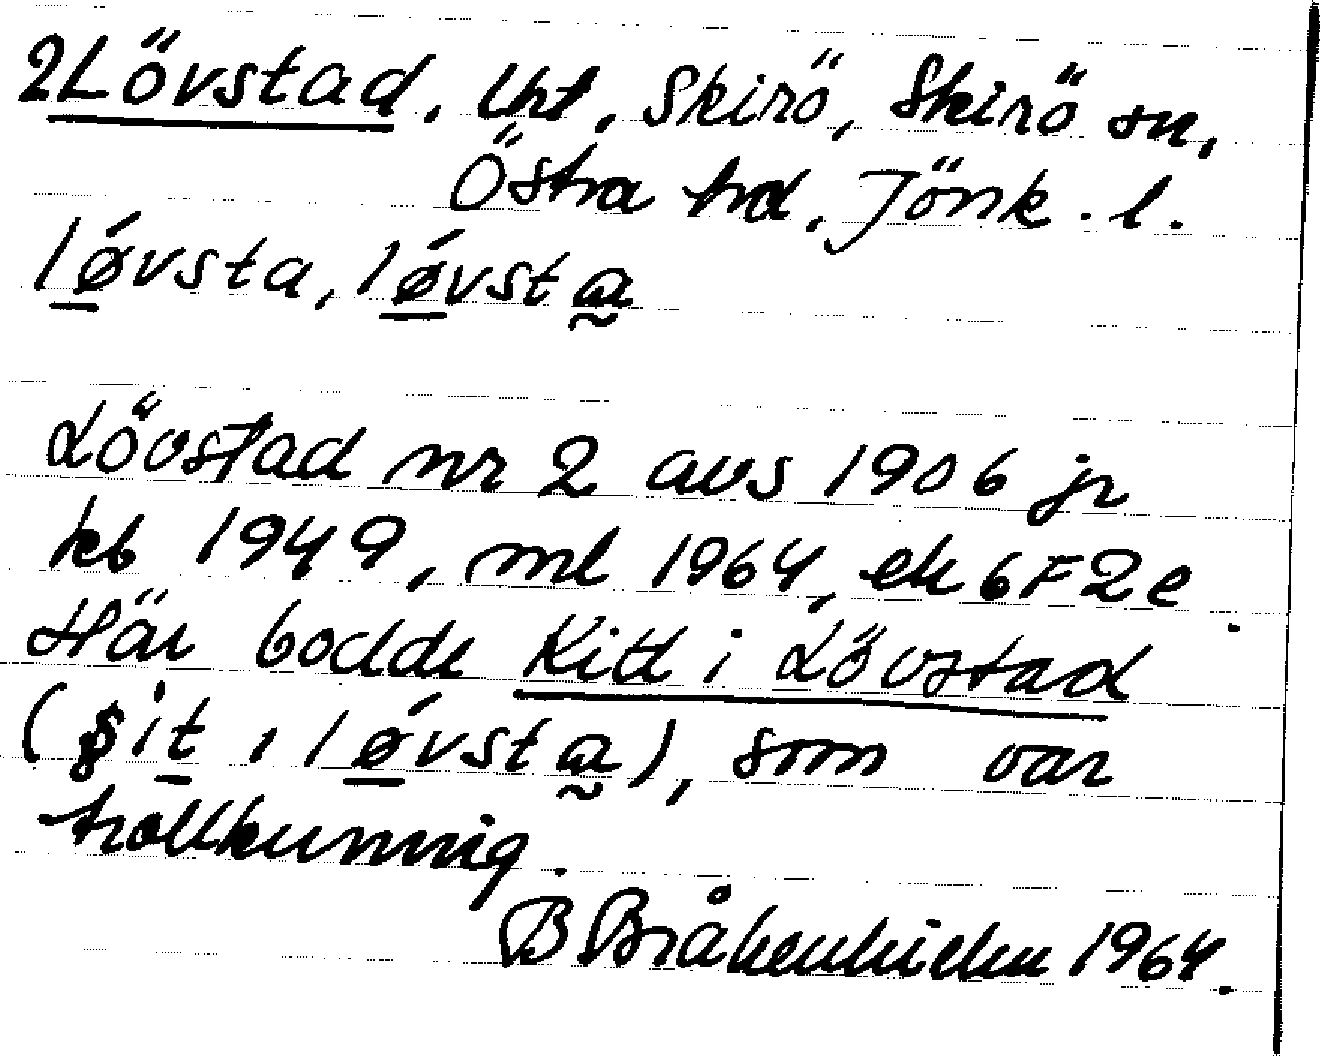 2 Lövstad, lht, Skirö, Skirö sn,
Östra hd, Jönk. l.
lǿvsta, lǿvsta̰
Lövstad nr 2 avs 1906 jr
kb 1949, ml 1964, ek 6F2e.
Här bodde Kitt i Lövstad
(§it i lǿvsta̰), som var
trollkunnig.
B 1964.